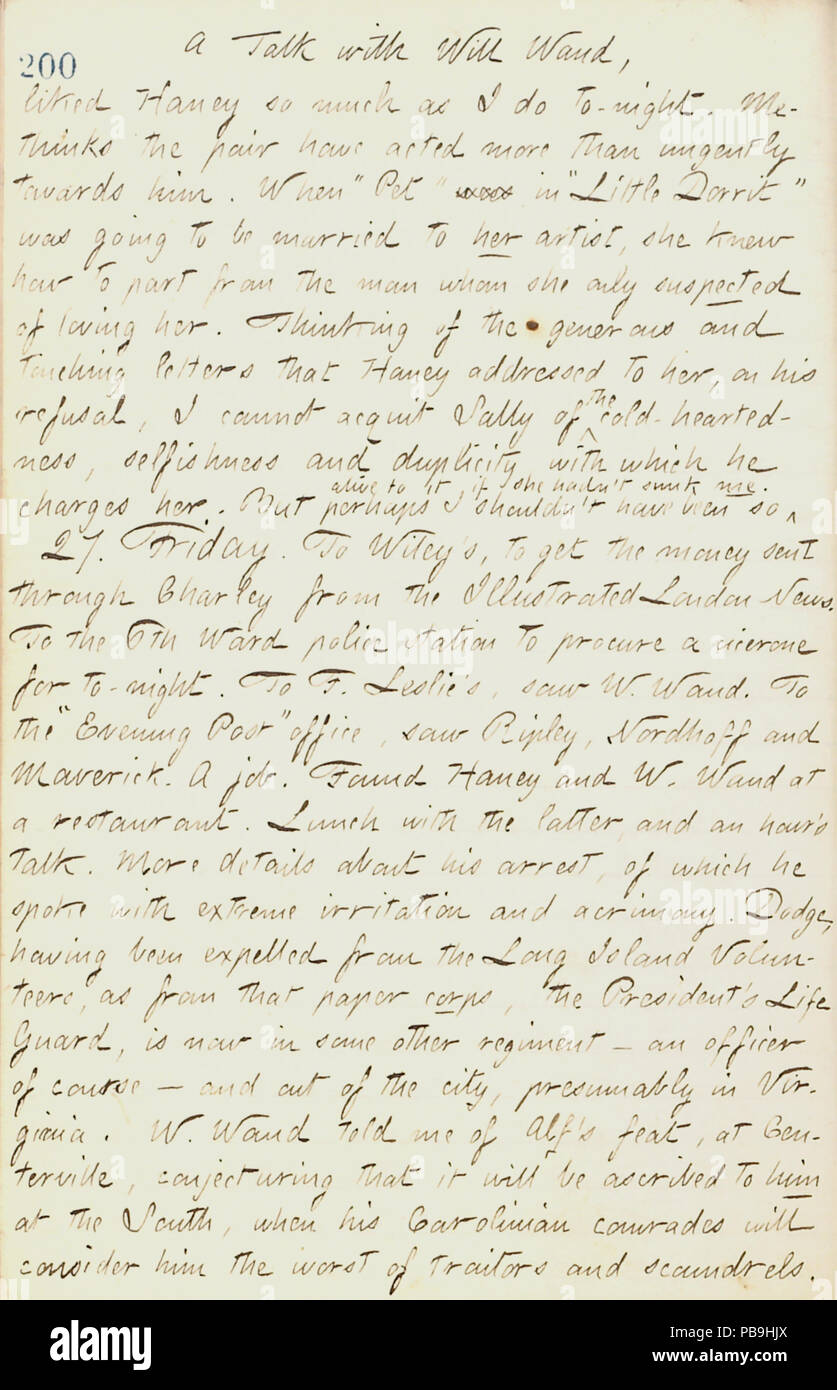 A Talk with Will Waud,
200
liked Haney so much as I do to-night. Me-
thinks the pair have acted more than ungently
towards him. When "Pet" was in "Little Dorrit"
was going to be married to her artist, she knew
how to part from the man whom she only suspected
of loving her. Thinking of the generous and
touching letters that Haney addressed to her, on his
refusal, I cannot acquit Sally of the cold-hearted-
ness, selfishness and duplicity with which he
charges her. But perhaps I shouldn't have been so
alive to it, if she hadn't sunk me.
27. Friday. To Wiley's, to get the money sent
through Charley from the Illustrated London News.
To the 6th Ward police station to procure a cicerone
for to-night. To F. Leslie's, saw W. Waud. To
the "Evening Post" office, saw Ripley, Nordhoff and
Maverick. A job. Found Haney and W. Waud at
a restaurant. Lunch with the latter, and an hour's
talk. More details about his arrest, of which he
spoke with extreme irritation and acrimony. Dodge,
having been expelled from the Long Island Volun-
teers, as from that paper corps, the President's Life
Guard, is now in some other regiment — an officer
of course — and out of the city, presumably in Vir-
ginia. W. Waud told me of Alf's feat, at Cen-
terville, conjecturing that it will be ascribed to him
at the South, when his Carolinian comrades will
consider him the worst of traitors and scoundrels.
alamy
Image ID: PB9HJX
www.alamy.com